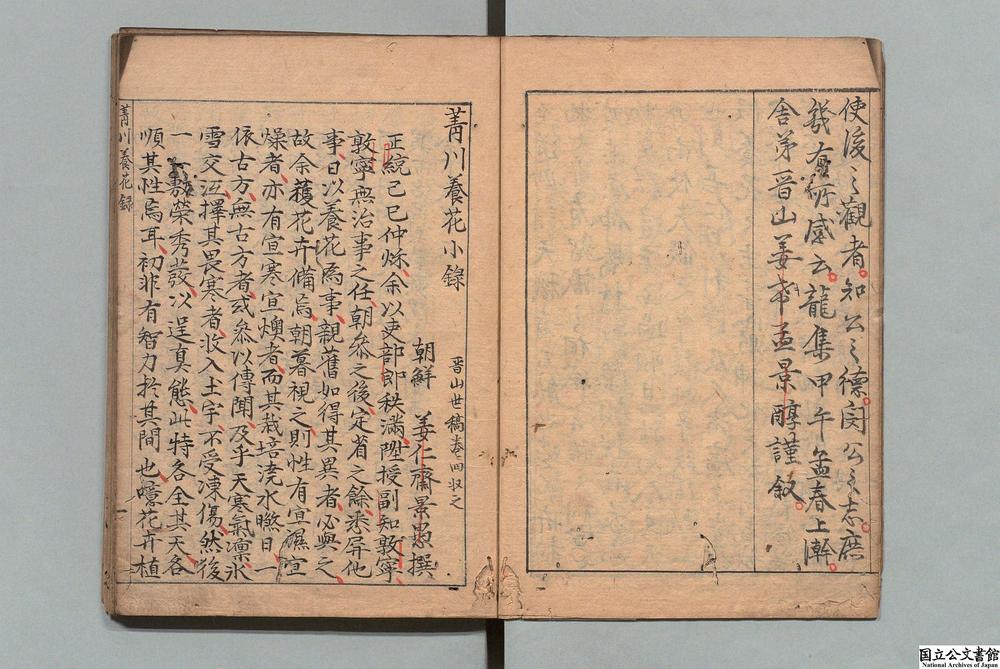 使後之觀者知公之德閔公之志庶
幾有所感云龍集甲午孟春上澣
舍弟晋山姜希孟景醇謹叙
菁川養花小錄
晋山世稿卷四収之
朝鮮 姜仁齋景愚撰
正統己巳仲秋余以吏部郎秩滿陞授副知敦寧
敦寧無治事之任朝參之後定省之餘悉屏他
事日以養花爲事親舊如得其異者必與之
故余穫花卉備焉朝暮視之則性有宜濕宜
燥者亦有宜寒宜燠者而其栽培澆水曬日一
依古方無古方者或叅以傳聞及乎天寒氣凛氷
雪交冱擇其畏寒者收入土宇不受凍傷然後
一一敷榮秀發以逞真態此特各全其天各
順其性焉耳初非有智力於其間也噫花卉植
菁川養花録
一
国立公文書館
National Archives of Japan